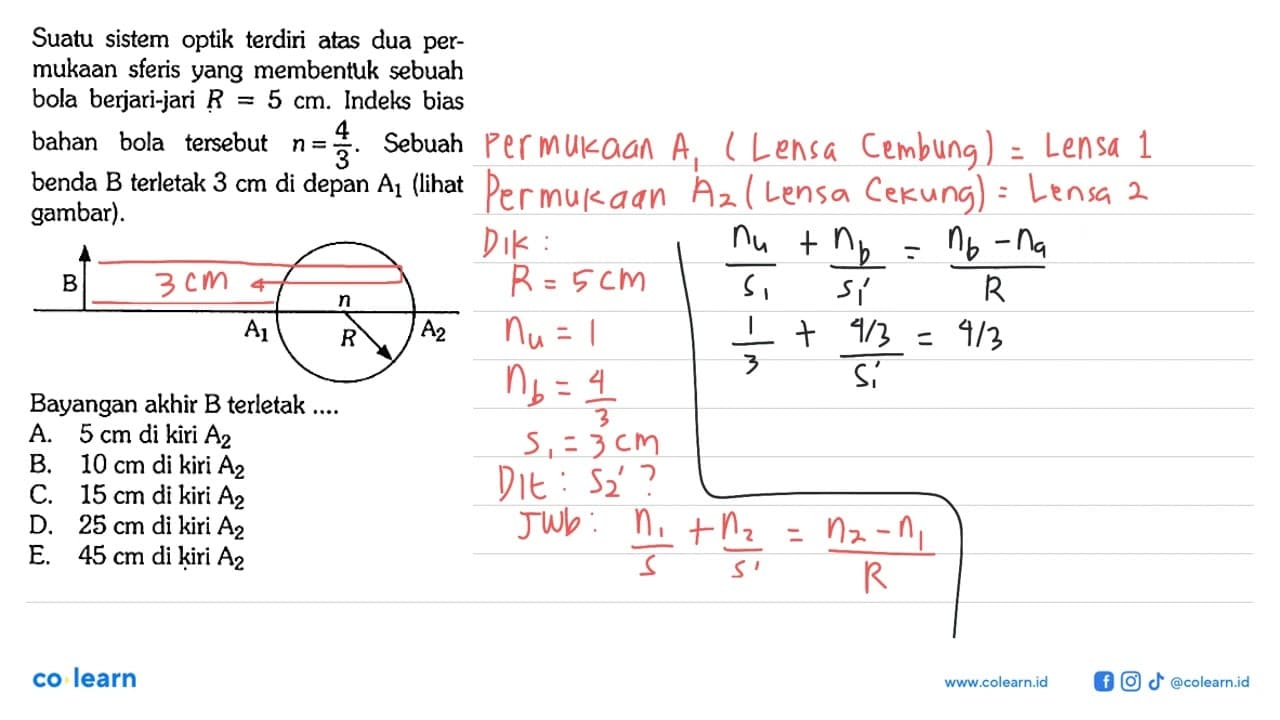 Suatu sistem optik terdiri atas dua per-
mukaan sferis yang membentuk sebuah
bola berjari-jari R = 5 cm. Indeks bias
bahan bola tersebut n = 4/3. Sebuah
benda B terletak 3 cm di depan A₁ (lihat
gambar).
B
3 cm
n
A₁
R
A₂
Bayangan akhir B terletak ....
A. 5 cm di kiri A₂
B. 10 cm di kiri A₂
C. 15 cm di kiri A₂
D. 25 cm di kiri A₂
E. 45 cm di kiri A₂
Permukaan A₁ (Lensa Cembung) = Lensa 1
Permukaan A₂ (Lensa Cekung) = Lensa 2
Dik :
R = 5 cm
nu = 1
nb = 4/3
s₁ = 3 cm
Dit : s₂' ?
Jwb : n₁/s + n₂/s' = n₂ - n₁/R
nu/s₁ + nb/s₁' = nb - na/R
1/3 + 4/3/s₁' = 4/3
co learn
www.colearn.id
@colearn.id